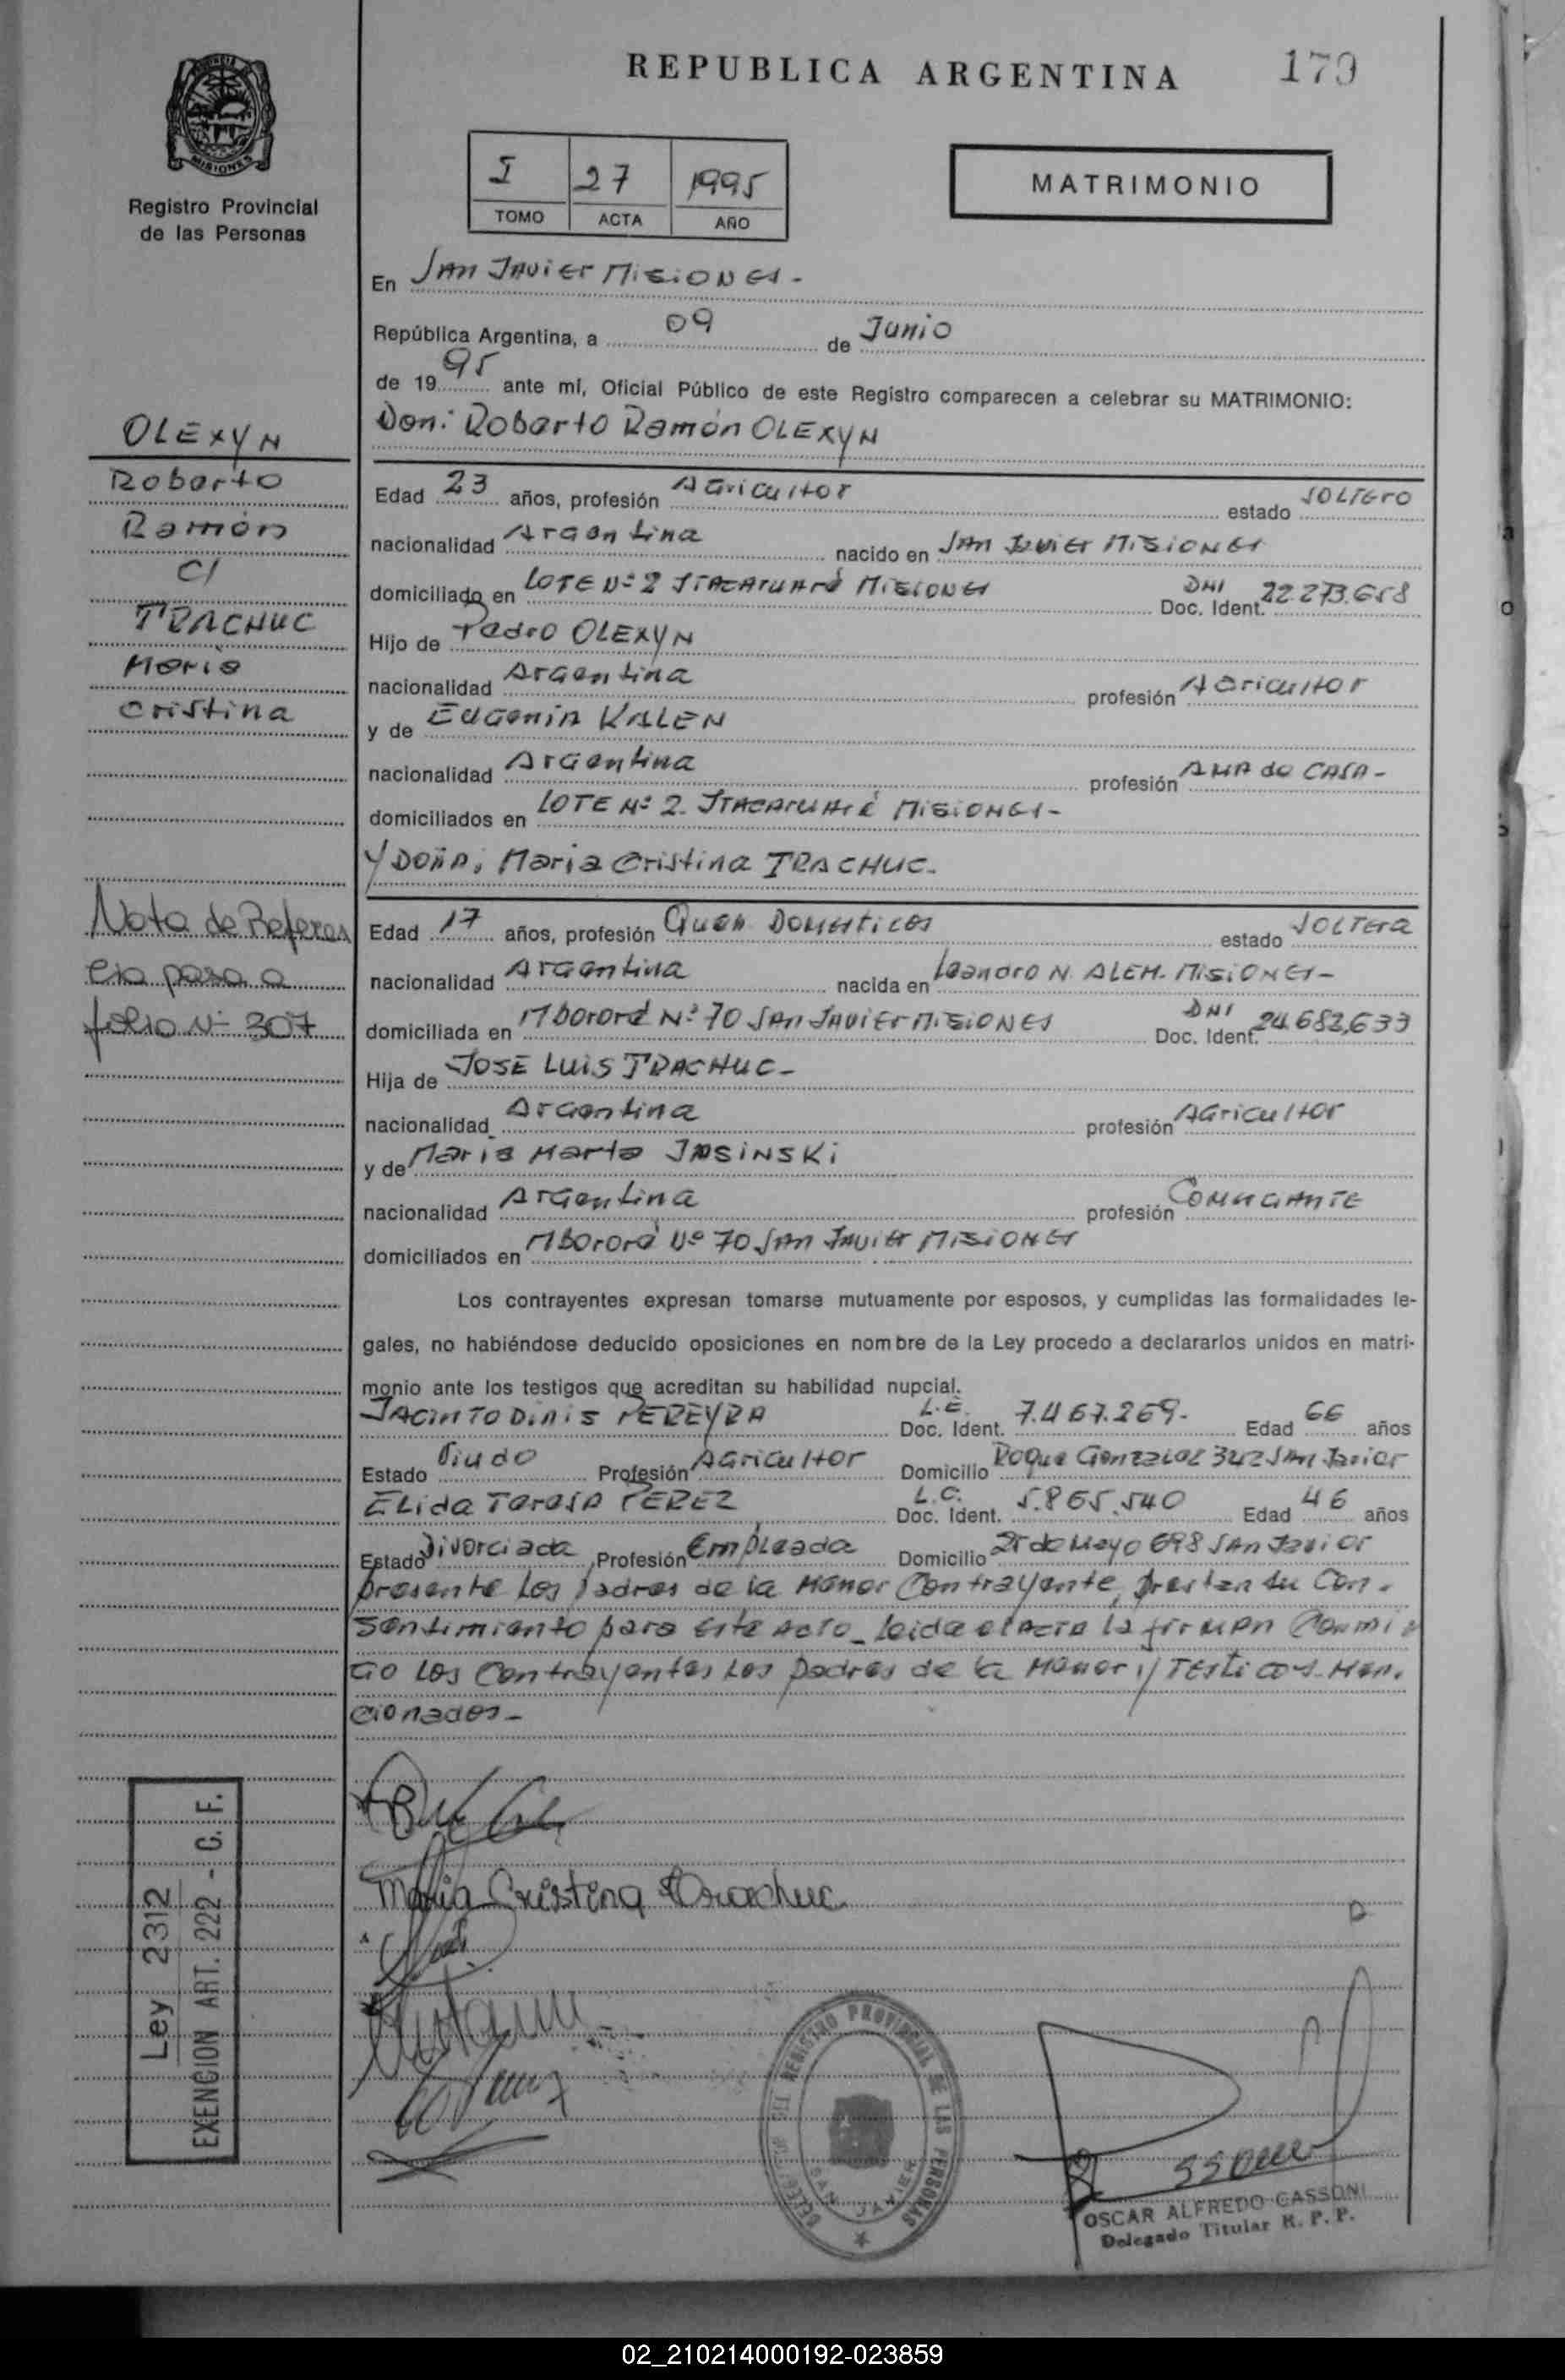 REPUBLICA ARGENTINA
179
MISIONES
Registro Provincial
de las Personas
I 27 1995
TOMO ACTA AÑO
MATRIMONIO
En San Javier Misiones.-
República Argentina, a 09 de Junio
de 1995 ante mí, Oficial Público de este Registro comparecen a celebrar su MATRIMONIO:
Don: Roberto Ramón OLEXYN
OLEXYN
Roberto
Ramón
c/
TRACHUC
María
Cristina
Edad 23 años, profesión Agricultor estado SOLTERO
nacionalidad Argentina nacido en San Javier Misiones
domiciliado en LOTE Nº 2 ITACARUARÉ Misiones DNI Doc. Ident. 22.273.658
Hijo de Pedro OLEXYN
nacionalidad Argentina profesión Agricultor
y de Eugenia KALEN
nacionalidad Argentina profesión AMA de CASA-
domiciliados en LOTE Nº 2. ITACARUARÉ Misiones-
Y DOÑA: Maria Cristina TRACHUC.
Nota de Referen
cia pasa a
folio Nº 307
Edad 17 años, profesión Domesticos estado SOLTERA
nacionalidad Argentina nacida en Leandro N. ALEM. Misiones-
domiciliada en Mbororé Nº 70 San Javier Misiones DNI Doc. Ident. 24.682.633
Hija de JOSE LUIS TRACHUC-
nacionalidad Argentina profesión Agricultor
y de Maria Marta JASINSKI
nacionalidad Argentina profesión
domiciliados en Mbororé Nº 70 San Javier Misiones
Los contrayentes expresan tomarse mutuamente por esposos, y cumplidas las formalidades le-
gales, no habiéndose deducido oposiciones en nombre de la Ley procedo a declararlos unidos en matri-
monio ante los testigos que acreditan su habilidad nupcial.
JACINTO DINIS PEREYRA L.E. Doc. Ident. 7.467.269- Edad 66 años
Estado Viudo Profesión Agricultor Domicilio Roque Gonzalez 342 San Javier
ELIDA Teresa PEREZ L.C. Doc. Ident. 5.865.540 Edad 46 años
Estado Divorciada Profesión Empleada Domicilio 25 de Mayo 698 San Javier
presente Los padres de la Menor Contrayente, prestan su Con-
sentimiento para este Acto_ leida el acta la firman Conmi
go Los Contrayentes Los padres de la Menor y Testigos Men.
cionados-
Ley 2312
EXENCION ART. 222 - C. F.
Maria Cristina Trachuc
REGISTRO PROVINCIAL DE LAS PERSONAS
SAN JAVIER
OSCAR ALFREDO CASSONI
Delegado Titular R. P. P.
02_210214000192-023859